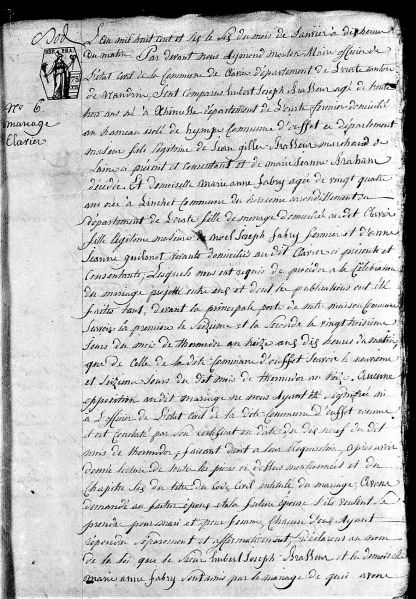 L'an mil huit cent et six le six du mois de Janvier à dix heures
du matin. Par devant nous Aymond mouton Maire officier de
l'Etat Civil de la Commune de Clavier département de Lourte canton
de Nandrin, Sont comparus hubert Joseph Brasseur agé de trente
trois ans né à département de Lourte fermier domicilié
au hameau isolé de Commune d'ouffet ce département
majeur fils légitime de Jean gilles Brasseur marchand de
à présent et Consentant et de marie Jeanne Braham
décédée. Et demoiselle marie anne fabry agée de vingt quatre
ans née à Linchet Commune du troisieme arrondissement du
département de Lourte fille de menage domiciliée audit Clavier
fille légitime de Noel Joseph fabry fermier et d'anne
Jeanne domiciliés audit Clavier ici présents et
Consentants, Lesquels nous ont requis de procéder à la Célébration
du mariage projetté entre eux et dont les publications ont été
faites tant, devant la principale porte de notre maison Commune
Savoir la premiere le Seizieme et la Seconde le vingt troisieme
Jours du mois de thermidor an treize aux dix heures du matin
que de Celle de la dite Commune d'ouffet Savoir le neuvieme
et Seizieme Jours du dit mois de thermidor an Aucune
opposition audit mariage ne nous Ayant été signifiée ni
à l'officier de l'Etat Civil de la dite Commune d'ouffet comme
il est Constaté par Son Certificat en date du dix neuf du dit
mois de thermidor, faisant droit à leur Requisition, après avoir
donné lecture de toutes les pièces ci dessus mentionnées et du
Chapitre Six du titre du Code Civil intitulé du mariage, Avons
demandé au futur époux et à la future épouse s'ils veulent se
prendre pour mari et pour femme, Chacun d'eux Ayant
répondu séparement et affirmativement, déclarons au nom
de la loi que le Sieur hubert Joseph Brasseur et la demoiselle
Marie anne fabry sont unis par le mariage de quoi avons
No 6
mariage
Clavier